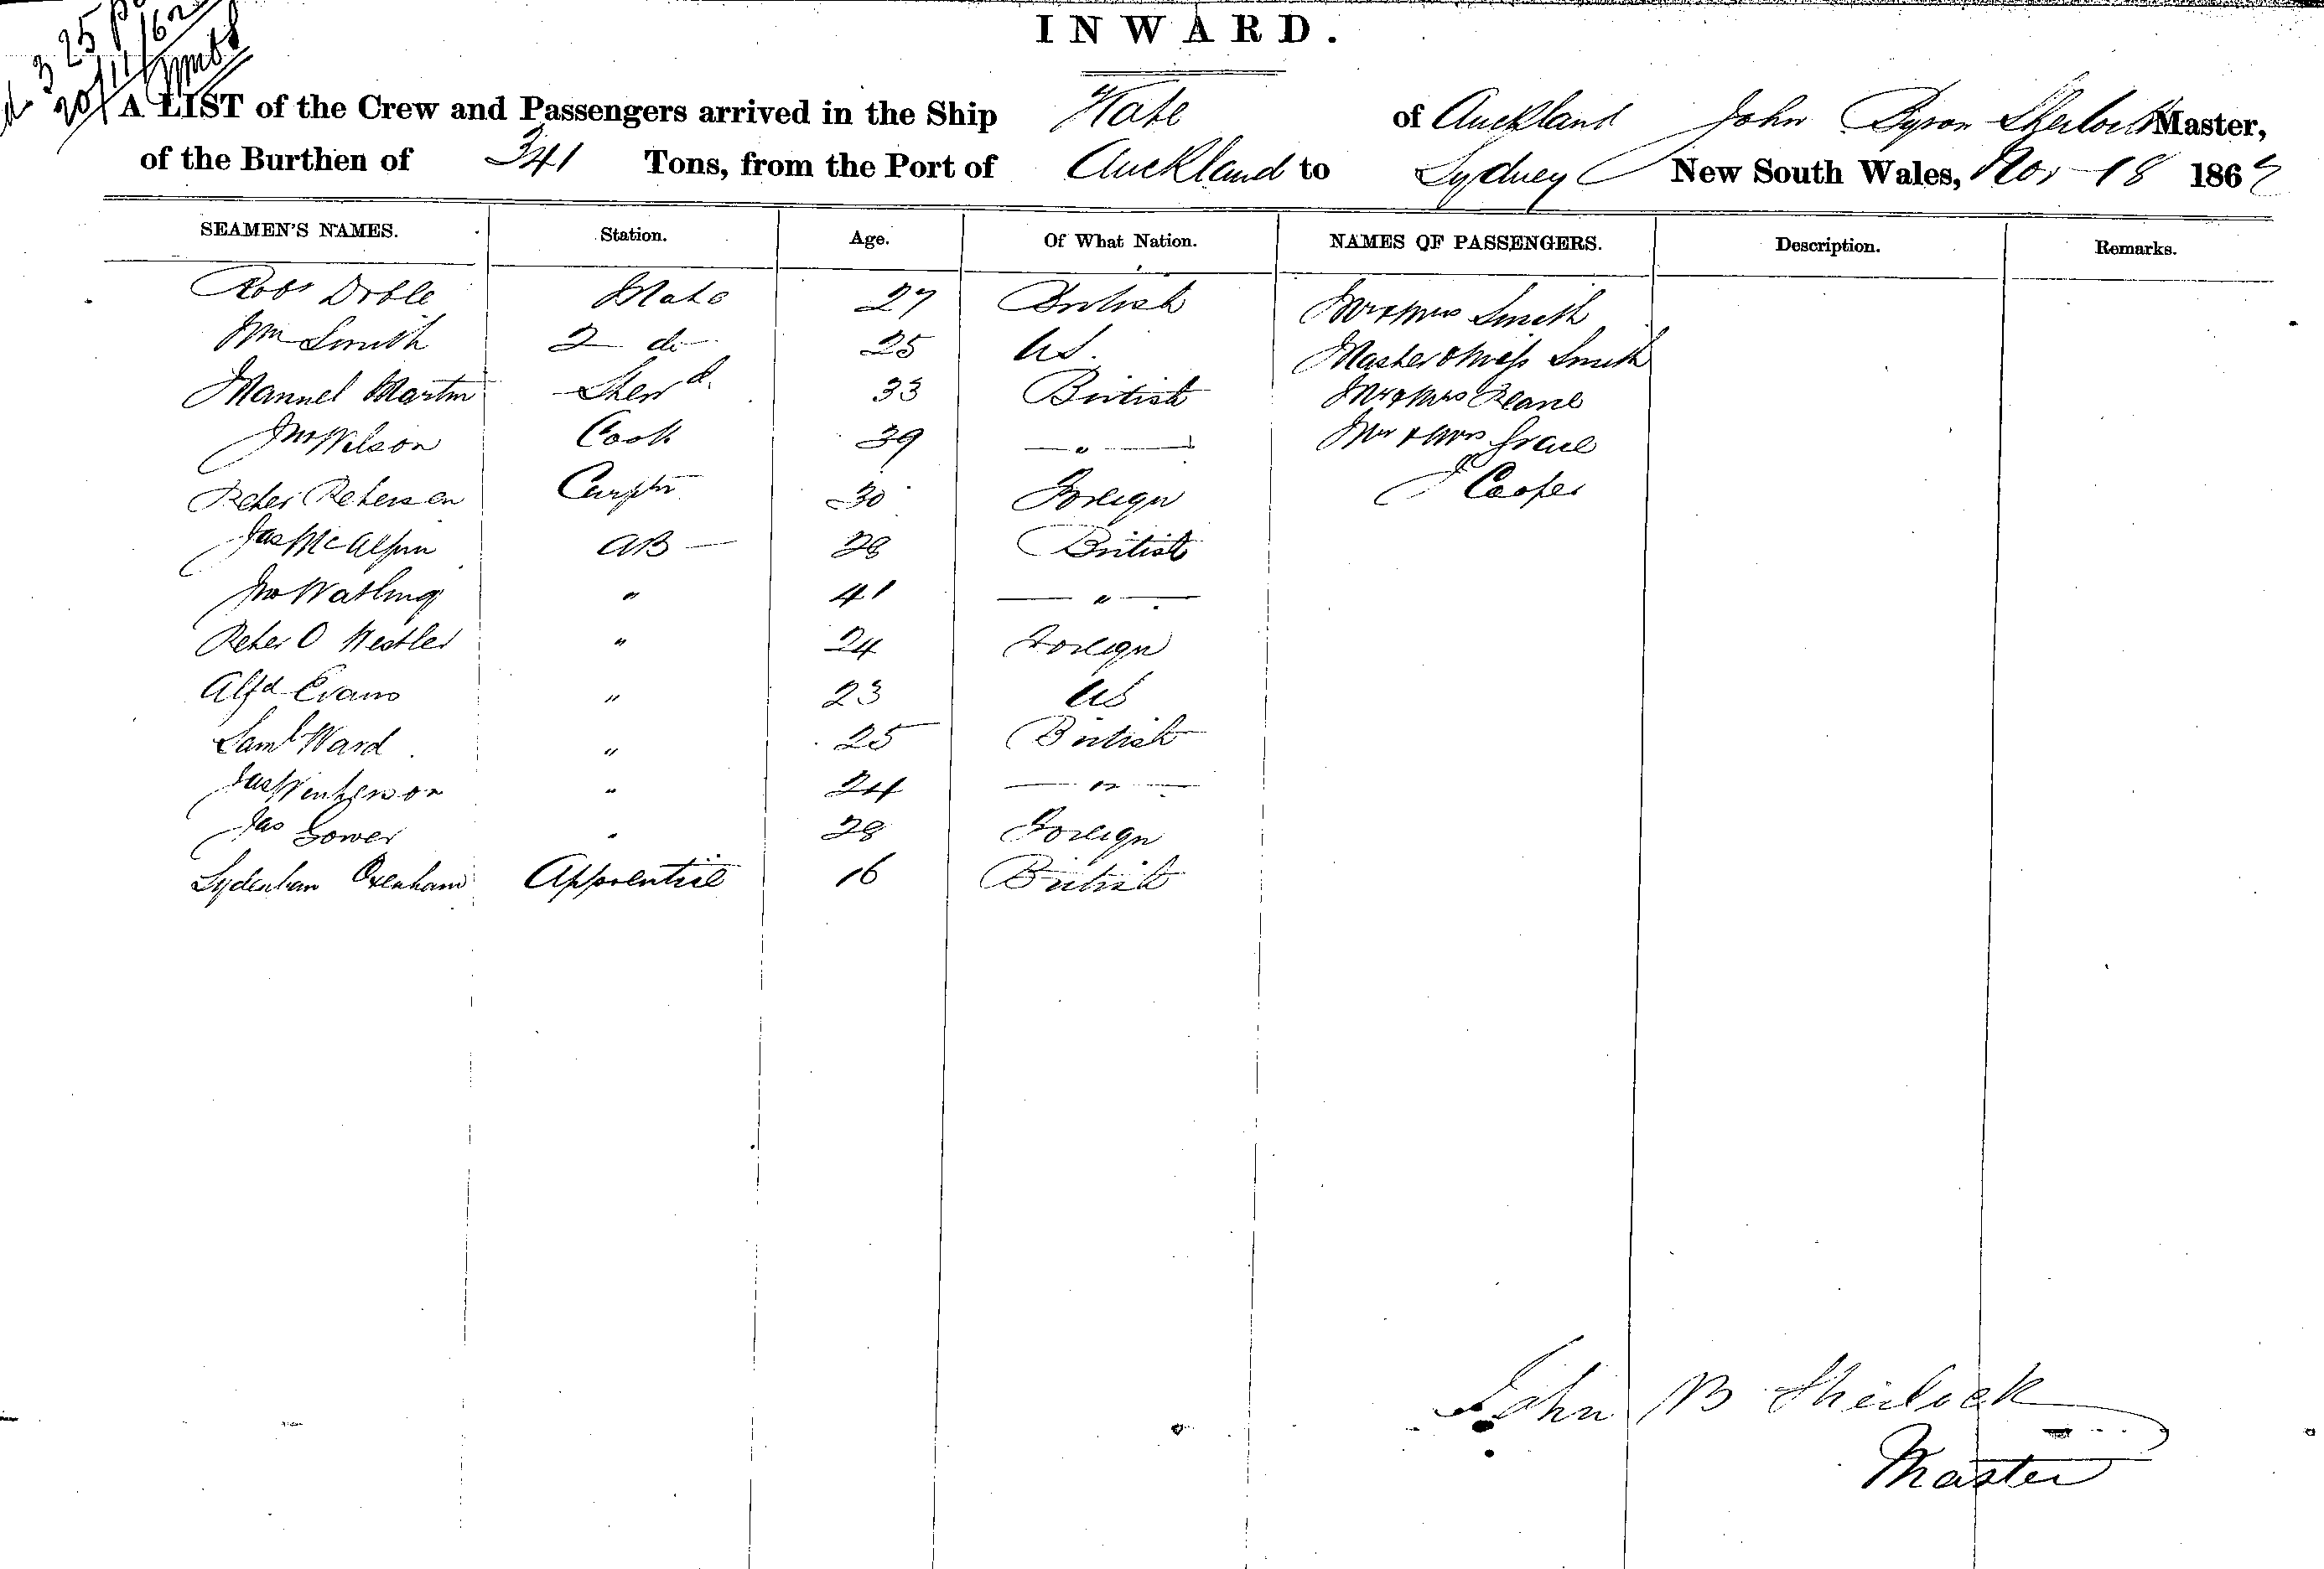 3 25 p
20/11/62
INWARD.
A LIST of the Crew and Passengers arrived in the Ship Kate of Auckland John Byron Sherlock Master,
of the Burthen of 341 Tons, from the Port of Auckland to Sydney New South Wales, Nov 18 1862
SEAMEN'S NAMES. Station. Age. Of What Nation. NAMES OF PASSENGERS. Description. Remarks.
Robt Doble Mate 27 British Mr & Mrs Smith
Wm Smith 2 do 25 US. Master & Miss Smith
Manuel Martin Stewd. 33 British Mr & Mrs
Jno Wilson Cook 39 — " — Mr & Mrs Grace
Peter Petersen Carptr 30 Foreign J Cooper
Jas McAlpin AB — 28 British
Jno Watling " 41 — " —
Peter O Westler " 24 Foreign
Alfd Evans " 23 US
Saml Ward " 25 British
Jas " 24 — " —
Jas Gower " 28 Foreign
Sydenham Oxenham Apprentice 16 British
John B Sherlock
Master